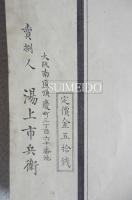 定價金五拾錢
大阪南區順慶町三丁目六十番地
賣捌人 湯上市兵衛
SUIMEIDO